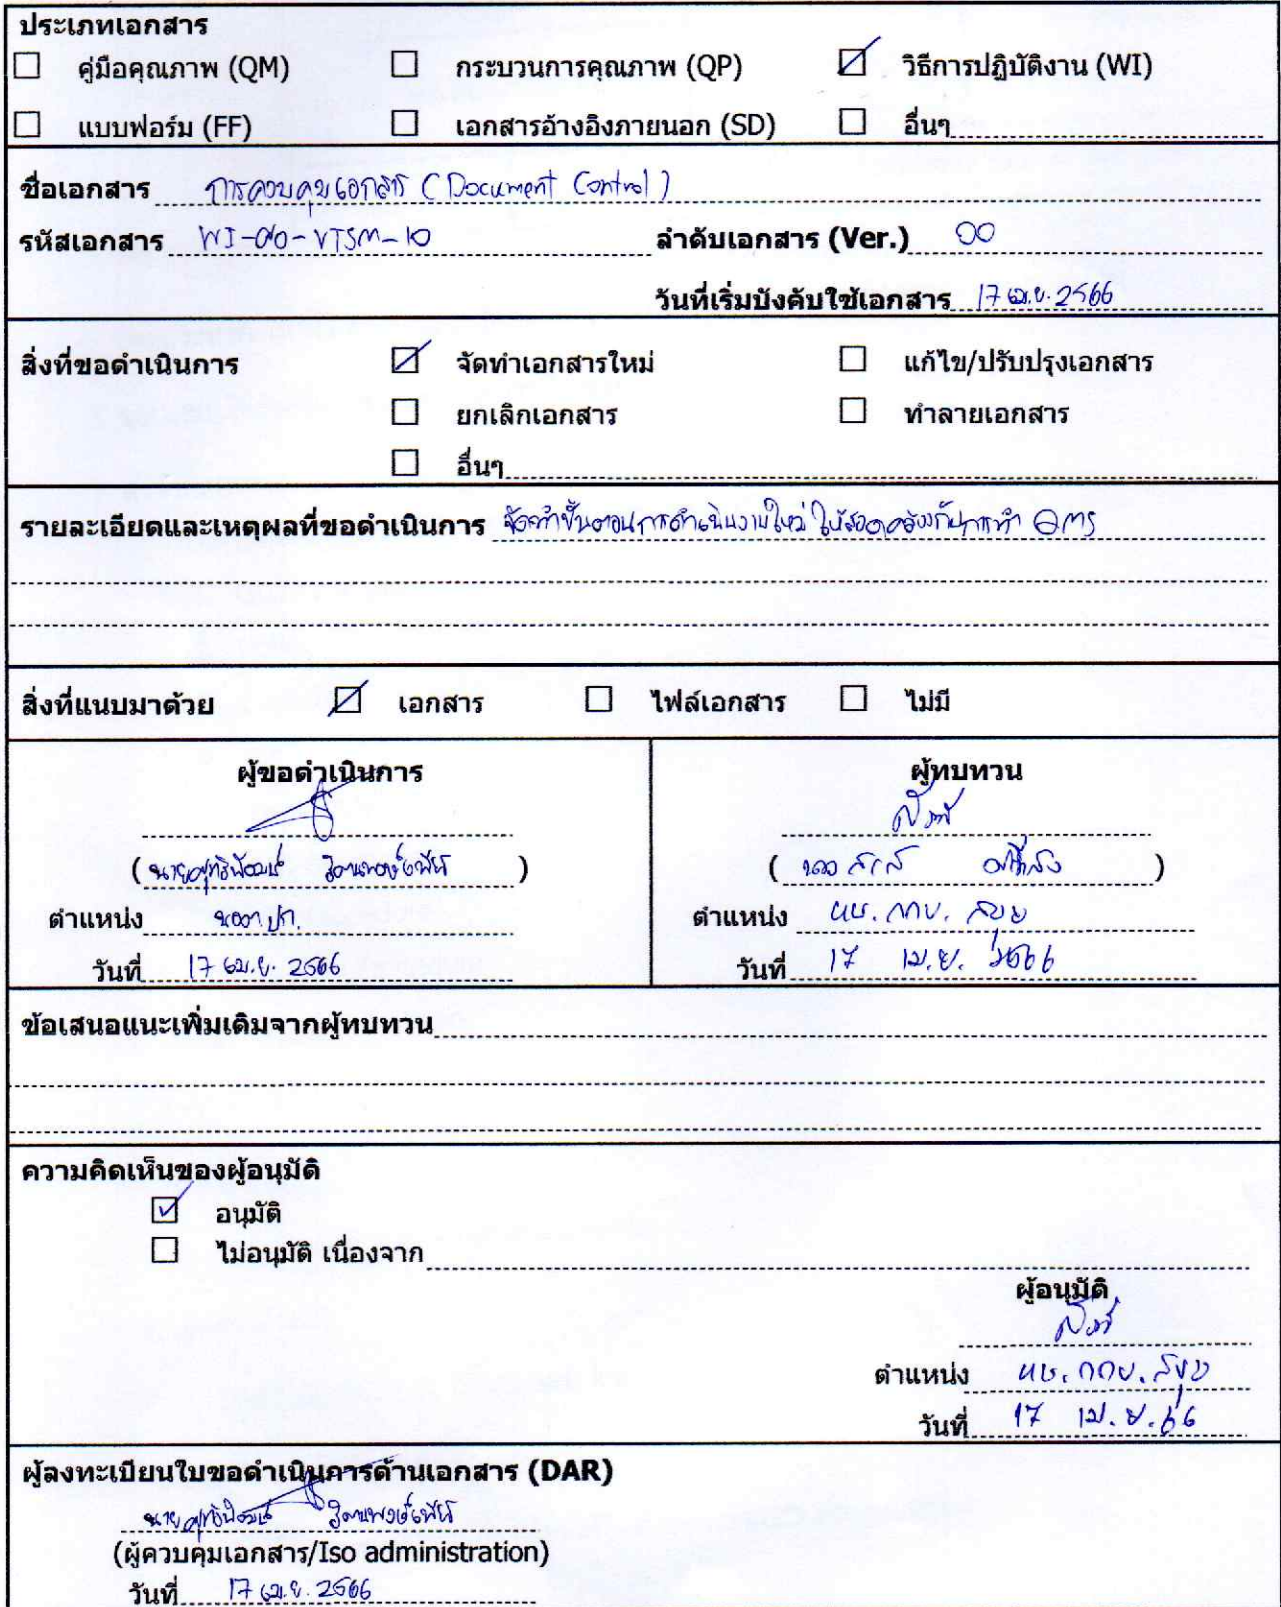 ประเภทเอกสาร
คู่มือคุณภาพ (QM) กระบวนการคุณภาพ (QP) วิธีการปฏิบัติงาน (WI)
แบบฟอร์ม (FF) เอกสารอ้างอิงภายนอก (SD) อื่นๆ
ชื่อเอกสาร การควบคุมเอกสาร (Document Control)
รหัสเอกสาร ลำดับเอกสาร (Ver.) 00
วันที่เริ่มบังคับใช้เอกสาร 17 เม.ย. 2566
สิ่งที่ขอดำเนินการ จัดทำเอกสารใหม่ แก้ไข/ปรับปรุงเอกสาร
ยกเลิกเอกสาร ทำลายเอกสาร
อื่นๆ
รายละเอียดและเหตุผลที่ขอดำเนินการ จัดทำขั้นตอนการดำเนินงานใหม่ ให้สอดคล้องกับการทำ QMS
สิ่งที่แนบมาด้วย เอกสาร ไฟล์เอกสาร ไม่มี
ผู้ขอดำเนินการ ผู้ทบทวน
( นาย ) ( )
ตำแหน่ง ตำแหน่ง
วันที่ 17 เม.ย. 2566 วันที่ 17 เม.ย. 2566
ข้อเสนอแนะเพิ่มเติมจากผู้ทบทวน
ความคิดเห็นของผู้อนุมัติ
อนุมัติ
ไม่อนุมัติ เนื่องจาก
ผู้อนุมัติ
ตำแหน่ง
วันที่ 17 เม.ย. 66
ผู้ลงทะเบียนใบขอดำเนินการด้านเอกสาร (DAR)
นาย
(ผู้ควบคุมเอกสาร/Iso administration)
วันที่ 17 เม.ย. 2566